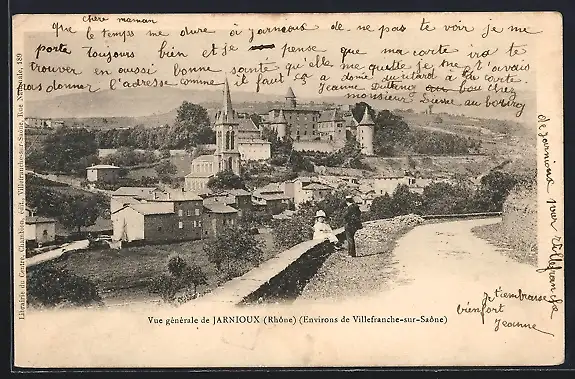 chère maman
que le temps me dure à jarnioux de ne pas te voir je me
porte toujours bien et je pense que ma carte ira te
trouver en aussi bonne santé qu'elle me quitte je ne t'avais
pas donner l'adresse comme il faut
Jeanne
boucher
monsieur
au bourg
de jarnioux par Villefranche
Librairie du Centre, Chambion, édit., Villefranche-sur-Saône, Rue Nationale, 189
je t'embrasse
bien fort
Jeanne
Vue générale de JARNIOUX (Rhône) (Environs de Villefranche-sur-Saône)